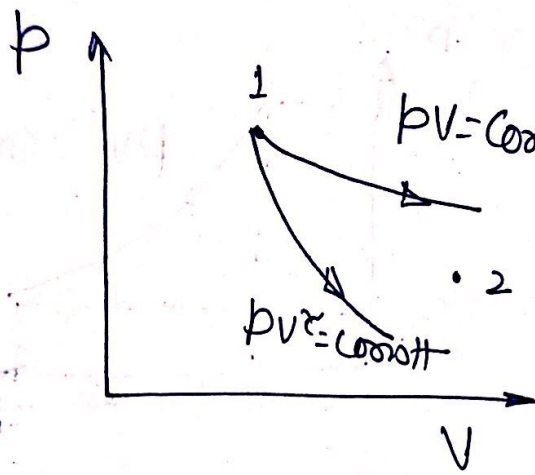 p
1
pV=Con
2
pV^γ=const
V